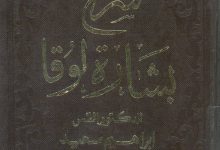 شرح
بشارة لوقا
للدكتور القس
إبراهيم سعيد